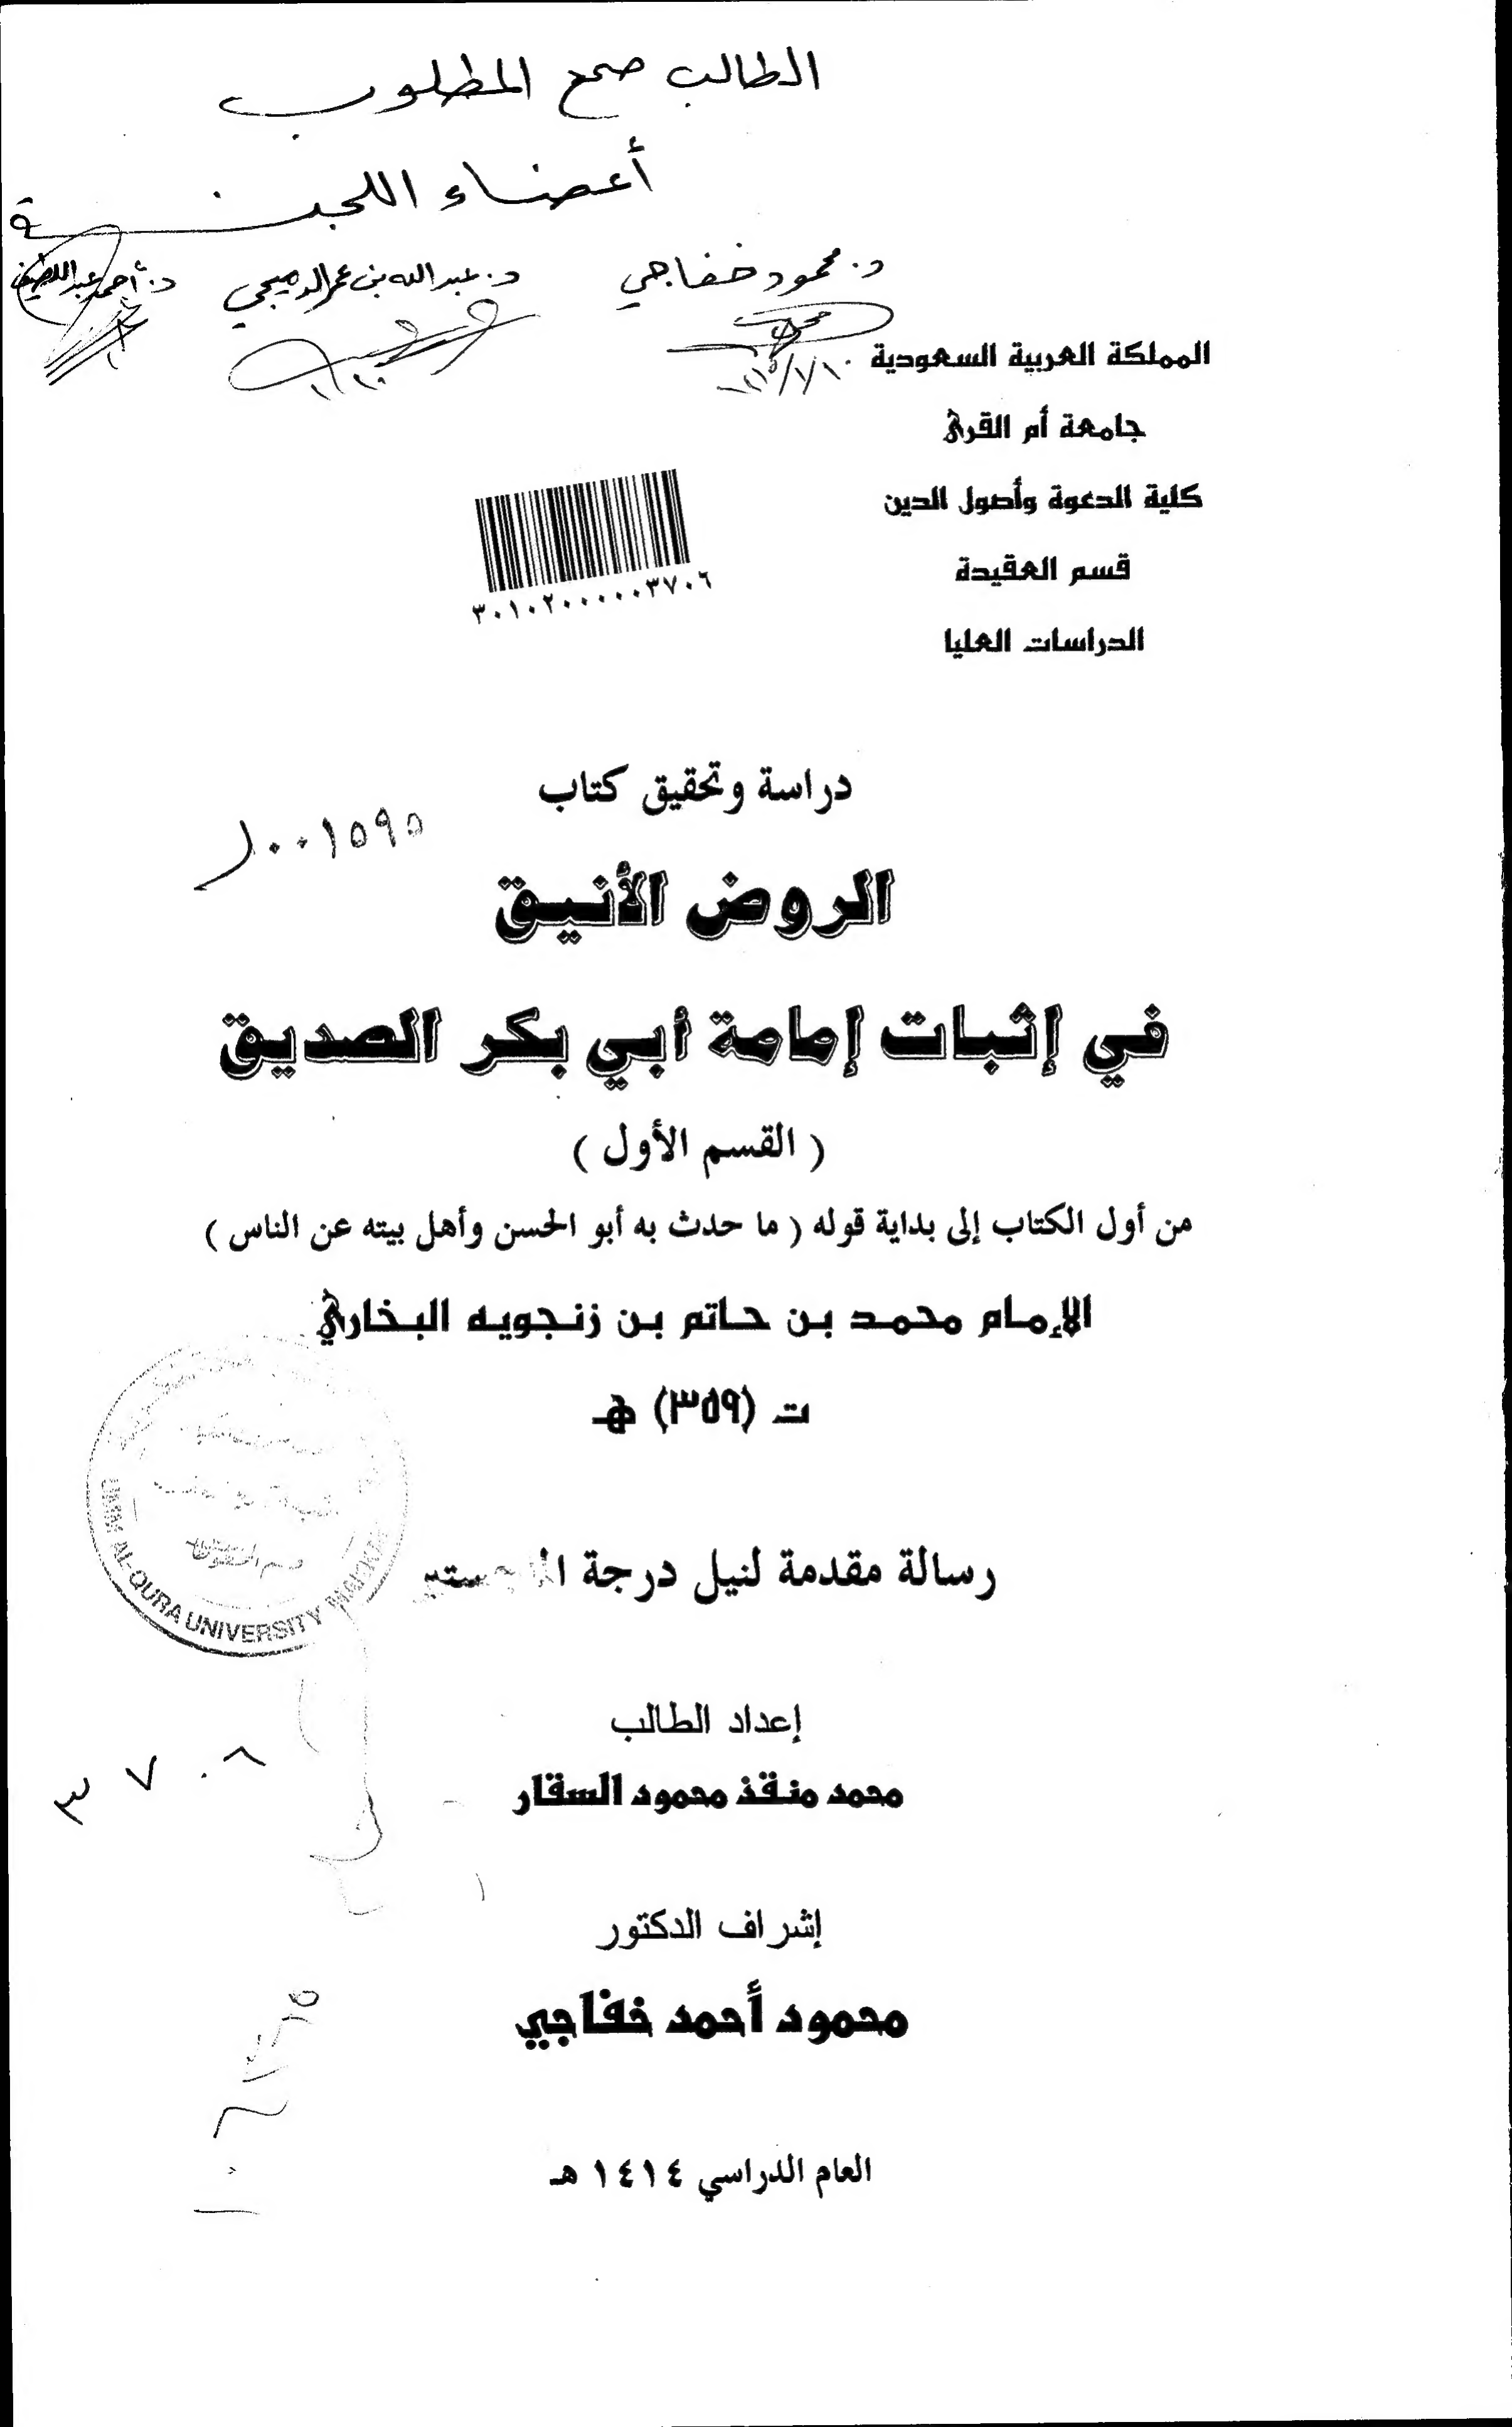 الطالب صحح المطلوب
أعضاء اللجنة
د. محمود خفاجي
د. عبد الله بن عمر الدميجي
د. أحمد عبد اللطيف
المملكة العربية السعودية
جامعة أم القرى
كلية الدعوة وأصول الدين
قسم العقيدة
الدراسات العليا
٣٠١٠٢٠٠٠٠٠٣٧٠٦
دراسة وتحقيق كتاب
٠٠١٥٩٥
الروض الأنيق
في إثبات إمامة أبي بكر الصديق
( القسم الأول )
من أول الكتاب إلى بداية قوله ( ما حدث به أبو الحسن وأهل بيته عن الناس )
الإمام محمد بن حاتم بن زنجويه البخاري
ت (٣٥٩) هـ
UMM AL-QURA UNIVERSITY MAKKAH
رسالة مقدمة لنيل درجة الماجستير
إعداد الطالب
محمد منقذ محمود السقار
٣٧٠٨
إشراف الدكتور
محمود أحمد خفاجي
العام الدراسي ١٤١٤ هـ